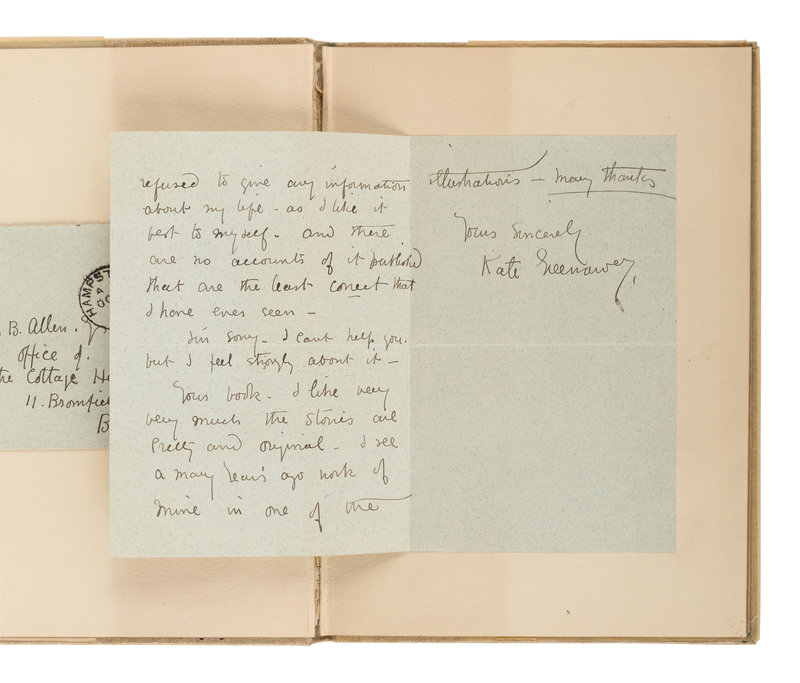 refused to give any information
about my life - as I like it
best to myself. and there
are no accounts of it published
that are the least correct that
I have ever seen -
I'm sorry - I cant help you.
but I feel strongly about it -
Your book - I like very
very much the stories are
Pretty and original - I see
a many Years ago work of
mine in one of the
illustrations - many thanks
Yours Sincerely
Kate Greenaway.
HAMPST
B. Allen.
office of.
the Cottage He
11. Bromfiel
B